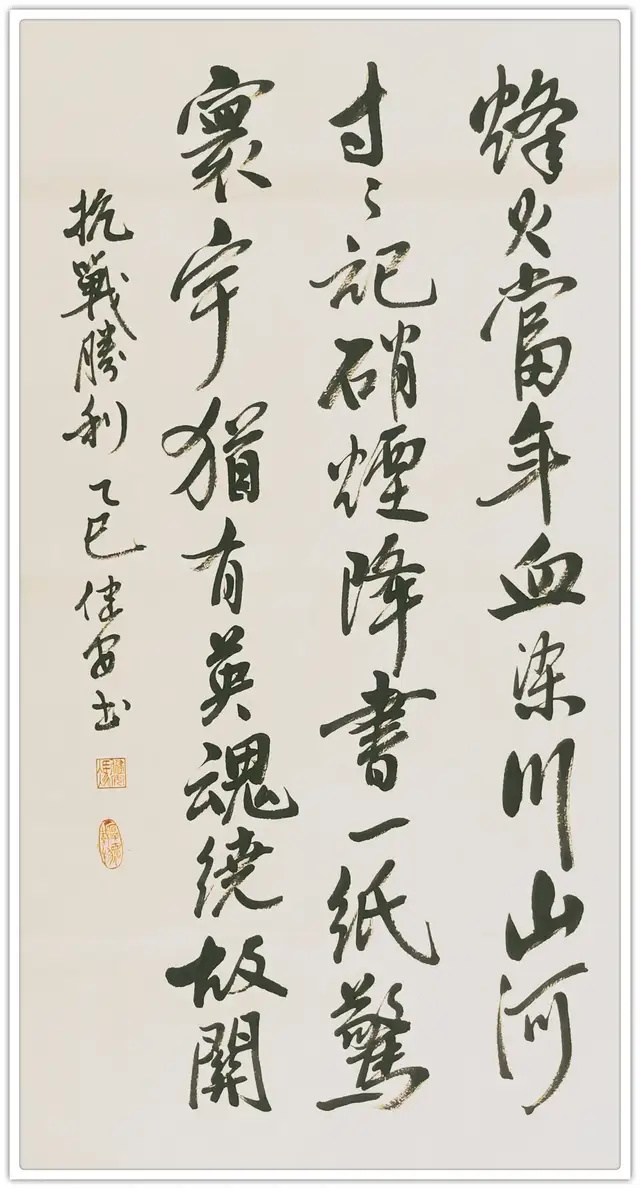 烽火當年血染川山河
寸々記硝煙降書一紙驚
寰宇猶有英魂繞故關
抗戰勝利乙巳健安书